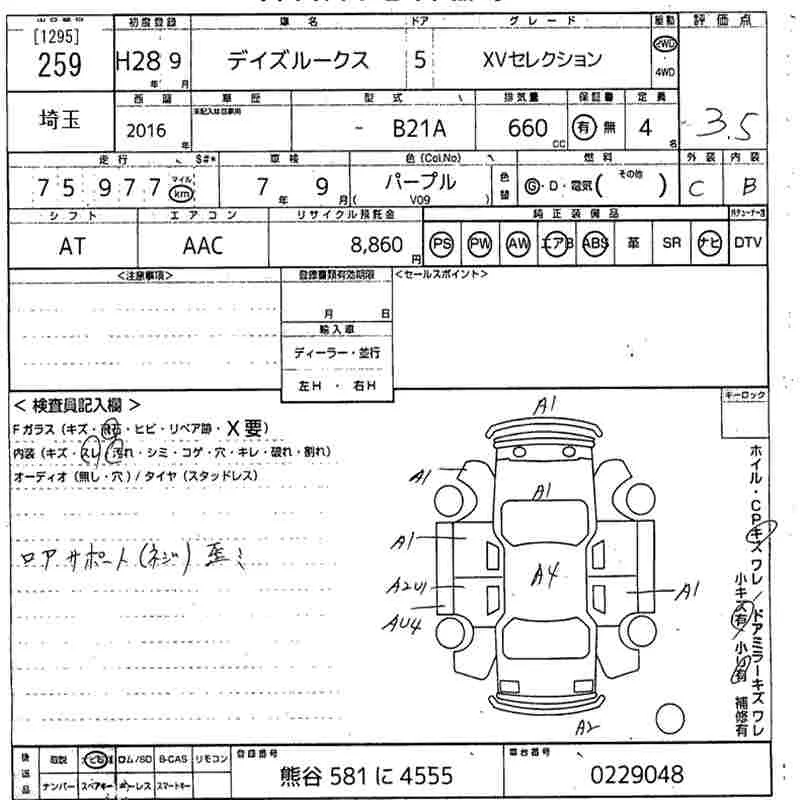 [1295]
259
初度登録
H28 9
年 月
車名
デイズルークス
ドア
5
グレード
XVセレクション
駆動
2WD
4WD
評価点
3.5
埼玉
西暦
2016
年
車歴
型式
- B21A
排気量
660
CC
保証書
有 無
定員
4
名
走行
75977
マイル
km
車検
7 年 9 月
色(Col,No)
パープル
( V09 )
色替
燃料
G・D・電気( その他 )
外装
C
内装
B
シフト
AT
エアコン
AAC
リサイクル預託金
8,860
円
純正装備品
PS PW AW エアB ABS 革 SR ナビ
DTV
<注意事項>
登録書類有効期限
月 日
輸入車
ディーラー・並行
左H ・ 右H
<セールスポイント>
< 検査員記入欄 >
Fガラス (キズ・飛石・ヒビ・リペア跡・X要)
内装 (キズ・スレ・汚れ・シミ・コゲ・穴・キレ・破れ・割れ)
オーディオ (無し・穴) / タイヤ (スタッドレス)
ロアサポート(ネジ) 歪ミ
キーロック
A1
A1
A1
A1
A4
A2U1
A1
AU4
A2
ホイル・CPキズワレ/ドアミラーキズワレ
小キズ有/小U有 補修有
後送品
取説 ナビ ロム/SD B-CAS リモコン
ナンバー スペアキー キーレス スマートキー
登録番号
熊谷 581 に 4555
車台番号
0229048